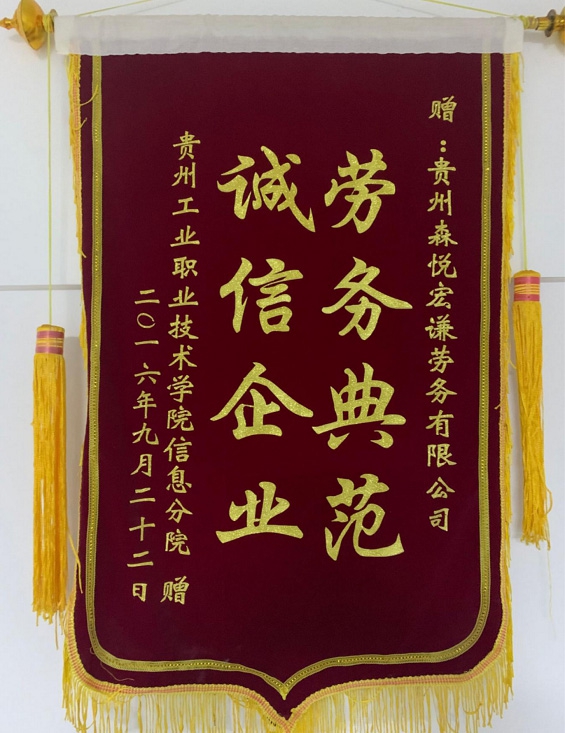 赠：贵州森悦宏谦劳务有限公司
劳务典范
诚信企业
贵州工业职业技术学院信息分院 赠
二〇一六年九月二十二日